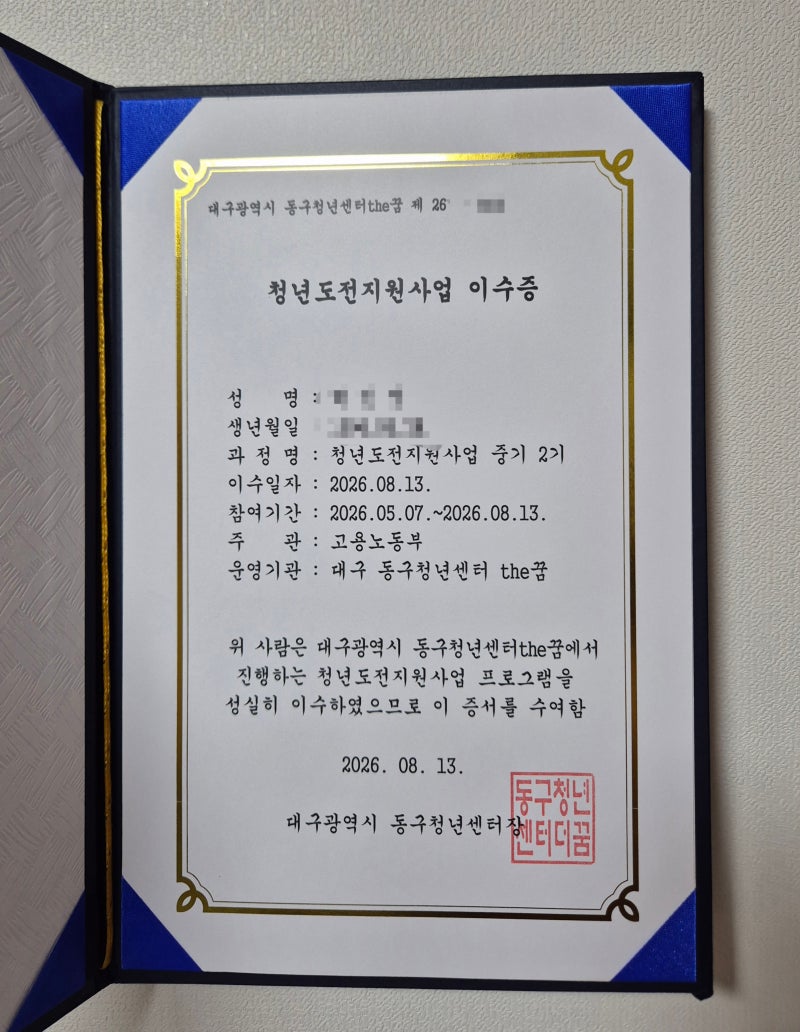 대구광역시 동구청년센터the꿈 제 26
청년도전지원사업 이수증
성 명 :
생년월일
과 정 명 : 청년도전지원사업 중기 2기
이수일자 : 2026.08.13.
참여기간 : 2026.05.07.~2026.08.13.
주 관 : 고용노동부
운영기관 : 대구 동구청년센터 the꿈
위 사람은 대구광역시 동구청년센터the꿈에서
진행하는 청년도전지원사업 프로그램을
성실히 이수하였으므로 이 증서를 수여함
2026. 08. 13.
대구광역시 동구청년센터장
동구청년
센터더꿈